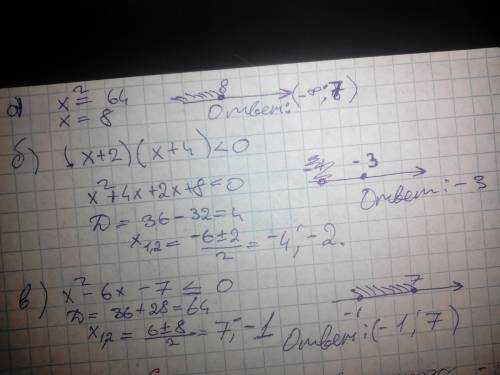 а) x² = 64
x = 8
8
Ответ: (-∞; 8)
б) (x+2)(x+4)<0
x²+4x+2x+8=0
D = 36-32=4
x1,2 = (-6±2)/2 = -4; -2.
-3
Ответ: -3
в) x²-6x-7 ≤ 0
D = 36+28=64
x1,2 = (6±8)/2 = 7; -1
-1 7
Ответ: (-1; 7)